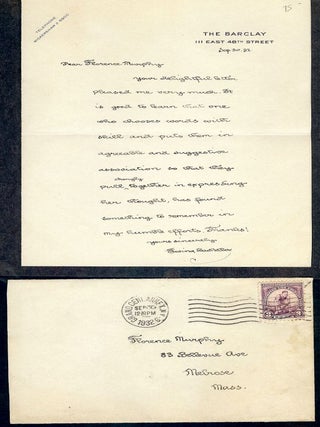 75
TELEPHONE
WICKERSHAM 2-5600
THE BARCLAY
111 EAST 48TH STREET
Dear Florence Murphy
your delightful letter
pleased me very much. It
is good to learn that one
who chooses words with
skill and puts them in
agreeable and suggestive
association so that they
strongly
pull together in expressing
her thought, has found
something to remember in
my humble efforts. Thanks!
yours sincerely
GRAND CENTRAL ANNEX N.Y.
SEP
12 PM
1932
Florence Murphy
83 Bellevue Ave
Melrose
Mass.